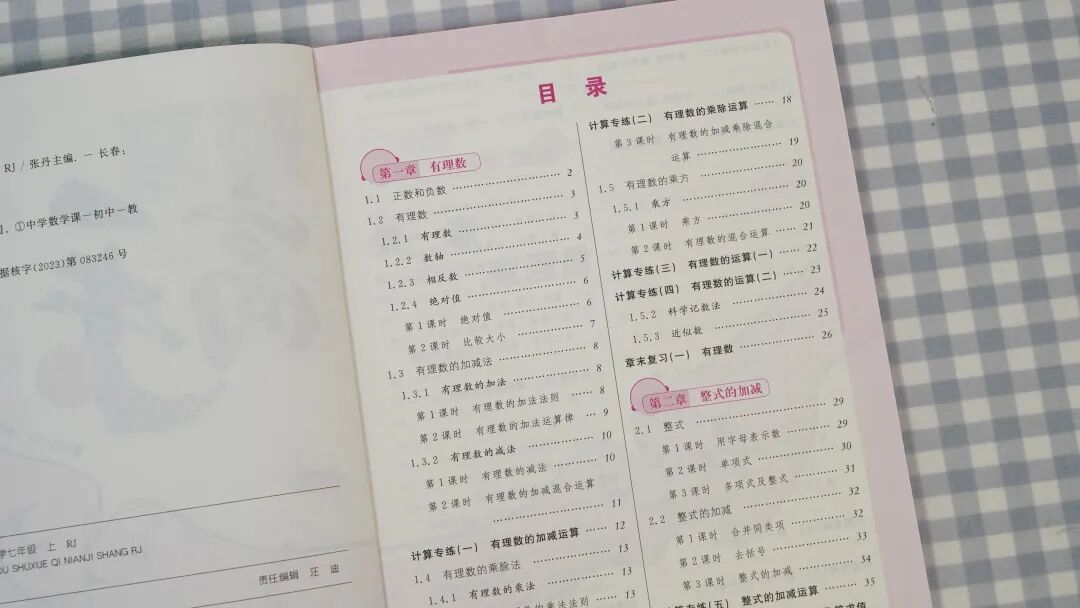 RJ / 张丹主编. — 长春:
①中学数学课－初中－教
据核字(2023)第 083246 号
学七年级 上 RJ
OU SHUXUE QI NIANJI SHANG RJ
责任编辑 汪 迪
目 录
第一章 有理数
1.1 正数和负数 …… 2
1.2 有理数 …… 3
1.2.1 有理数 …… 3
1.2.2 数轴 …… 4
1.2.3 相反数 …… 5
1.2.4 绝对值 …… 6
第1课时 绝对值 …… 6
第2课时 比较大小 …… 7
1.3 有理数的加减法 …… 8
1.3.1 有理数的加法 …… 8
第1课时 有理数的加法法则 …… 8
第2课时 有理数的加法运算律 … 9
1.3.2 有理数的减法 …… 10
第1课时 有理数的减法 …… 10
第2课时 有理数的加减混合运算
…… 11
计算专练(一) 有理数的加减运算 …… 12
1.4 有理数的乘除法 …… 13
1.4.1 有理数的乘法 …… 13
有理数的乘法法则 …… 13
计算专练(二) 有理数的乘除运算 …… 18
第3课时 有理数的加减乘除混合
运算 …… 19
1.5 有理数的乘方 …… 20
1.5.1 乘方 …… 20
第1课时 乘方 …… 20
第2课时 有理数的混合运算 …… 21
计算专练(三) 有理数的运算(一) …… 22
计算专练(四) 有理数的运算(二) …… 23
1.5.2 科学记数法 …… 24
1.5.3 近似数 …… 25
章末复习(一) 有理数 …… 26
第二章 整式的加减
2.1 整式 …… 29
第1课时 用字母表示数 …… 29
第2课时 单项式 …… 30
第3课时 多项式及整式 …… 31
2.2 整式的加减 …… 32
第1课时 合并同类项 …… 32
第2课时 去括号 …… 33
第3课时 整式的加减 …… 34
计算专练(五) 整式的加减运算 …… 35